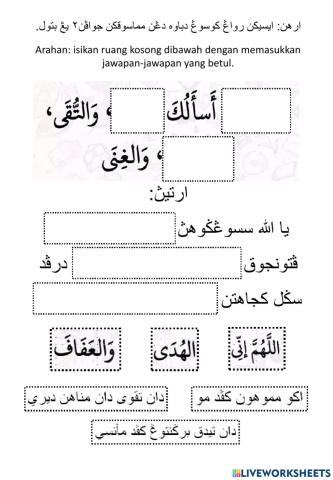 ارهن: ايسيكن رواڠ كوسوڠ دباوه دڠن مماسوقكن جواڤن٢ يڠ بتول.
Arahan: isikan ruang kosong dibawah dengan memasukkan
jawapan-jawapan yang betul.
أَسأَلُكَ ، وَالتُّقَى،
، وَالغِنَى
ارتيڽ:
يا الله سسوڠݢوهڽ
ڤتونجوق درڤد
سݢل كجاهتن
اللَّهُمَّ إِنِّي الهُدَى وَالعَفَافَ
اكو مموهون كڤد مو دان تقوى دان مناهن ديري
دان تيدق برݢنتوڠ كڤد مأنسي
LIVEWORKSHEETS